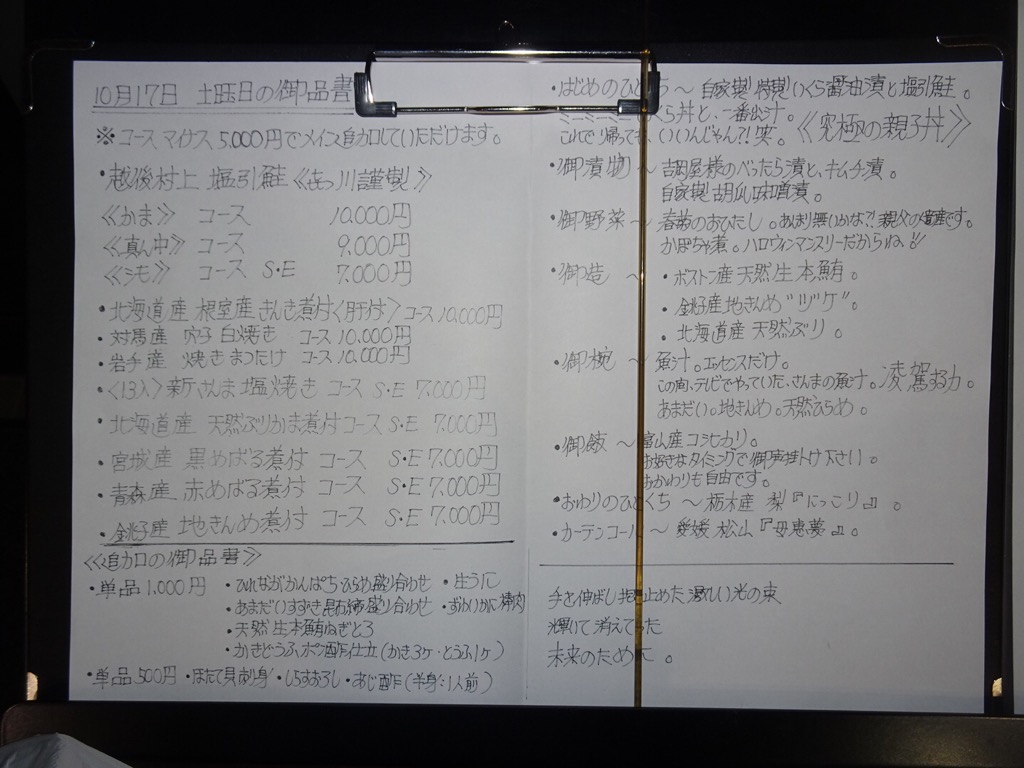 10月17日 土曜日の御品書
※コースマイナス5.000円でメイン追加していただけます。
・越後村上 塩引鮭《きっ川謹製》
《かま》 コース 10.000円
《真ん中》 コース 9.000円
《しも》 コース S・E 7.000円
・北海道産 根室産きんき煮付〈肝付〉コース10.000円
・対馬産 穴子白焼き コース10.000円
・岩手産 焼きまつたけ コース10.000円
・〈13入〉新さんま塩焼き コース S・E 7.000円
・北海道産 天然ぶりかま煮付コース S・E 7.000円
・宮城産 黒めばる煮付 コース S・E 7.000円
・青森産 赤めばる煮付 コース S・E 7.000円
・銚子産 地きんめ煮付 コース S・E 7.000円
《追加の御品書》
・単品1.000円 ・ひれながかんぱち・ひらめ盛り合わせ ・生うに
・あまだい・すずき昆布締盛り合わせ ・ずわいがに棒肉
・天然生本鮪ねぎとろ
・かきどうふポン酢仕立(かき3ヶ・とうふ1ヶ)
・単品500円 ・ほたて貝刺身 ・しらすおろし ・あじ酢(半身:1人前)
・はじめのひとくち〜 自家製特製いくら醤油漬と塩引鮭。
ミーミーミーくら丼と、一番出汁。
これで帰っても、いいんじゃん?!笑。《究極の親子丼》
・御漬物〜 吉岡屋様のべったら漬と、キムチ漬。
自家製胡瓜味噌漬。
・御野菜〜 春菊のおひたし。あまり無いかな?!親父の遺産です。
かぼちゃ煮。ハロウィンマンスリーだからね!!
・御造 〜 ・ボストン産天然生本鮪。
・銚子産地きんめ“ヅケ”。
・北海道産 天然ぶり。
・御椀 〜 魚汁。エッセンスだけ。
この間、テレビでやっていた、さんまの魚汁。凌駕する力。
あまだい。地きんめ。天然ひらめ。
・御飯 〜 富山産コシヒカリ。
お好きなタイミングで御声掛け下さい。
おかわりも自由です。
・おわりのひとくち〜 栃木産 梨『にっこり』。
・カーテンコール〜 愛媛 松山『母恵夢』。
手を伸ばし 抱き止めた 激しい光の束
輝いて消えてった
未来のために。